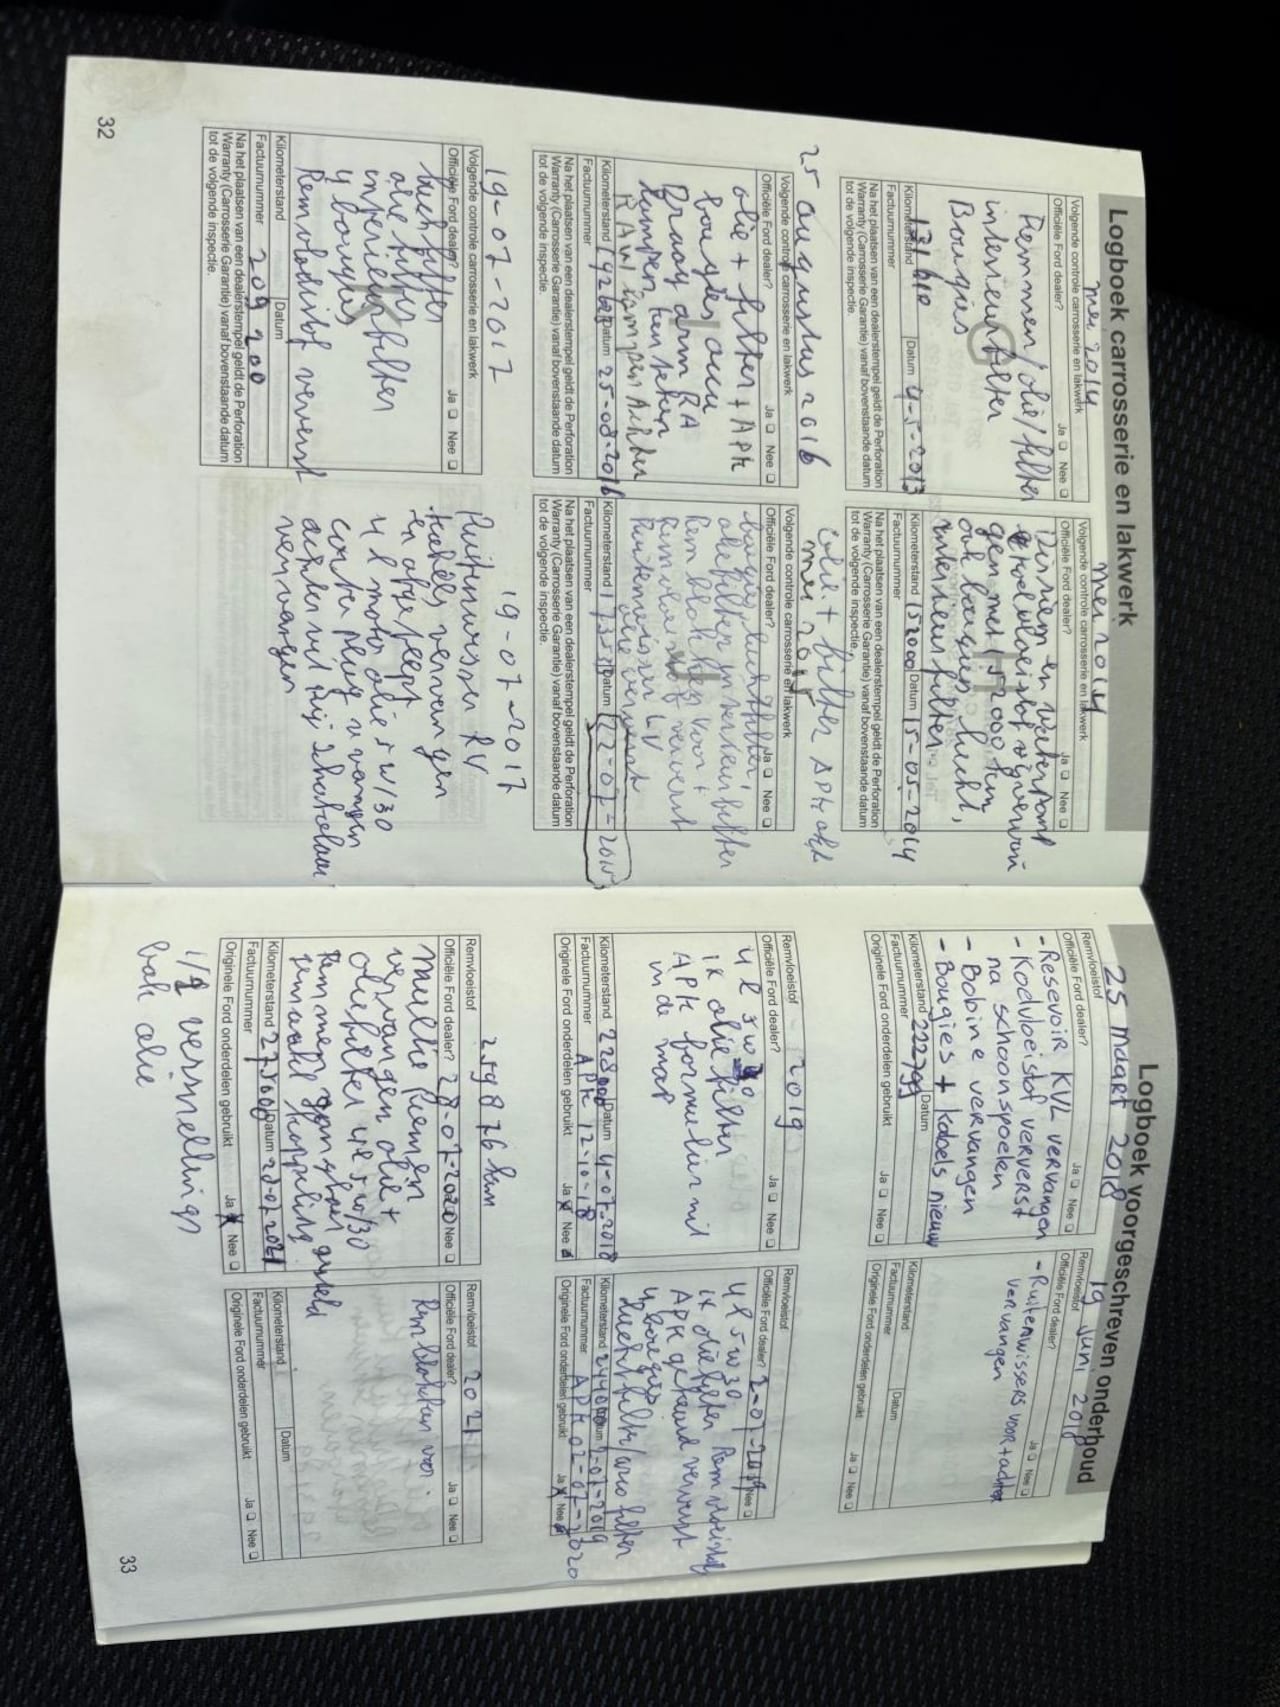 Logboek carrosserie en lakwerk
mei 2014
Volgende controle carrosserie en lakwerk
Officiële Ford dealer? Ja Nee
Remmen/olie/filter
interieurfilter
Bougies
Kilometerstand Datum 4-5-2013
Factuurnummer
Na het plaatsen van een dealerstempel geldt de Perforation
Warranty (Carrosserie Garantie) vanaf bovenstaande datum
tot de volgende inspectie.
mei 2014
Volgende controle carrosserie en lakwerk
Officiële Ford dealer? Ja Nee
en waterpomp
gen met 152000 km
ook bougies, lucht,
interieurfilter
Kilometerstand 152000 Datum 15-05-2014
Factuurnummer
Na het plaatsen van een dealerstempel geldt de Perforation
Warranty (Carrosserie Garantie) vanaf bovenstaande datum
tot de volgende inspectie.
25 augustus 2016
Volgende controle carrosserie en lakwerk
Officiële Ford dealer? Ja Nee
olie + filter + APK
bougies accu
Draagarm RA
lampen kenteken
RAW lampen Achter
Kilometerstand Datum 25-08-2016
Factuurnummer
Na het plaatsen van een dealerstempel geldt de Perforation
Warranty (Carrosserie Garantie) vanaf bovenstaande datum
tot de volgende inspectie.
olie + filter APK
mei 2015
Volgende controle carrosserie en lakwerk
Officiële Ford dealer? Ja Nee
bougies, luchtfilter,
oliefilter interieurfilter
Remblokken voor +
Remvloeistof ververst
LV
olie ververst
Kilometerstand Datum 22-07-2015
Factuurnummer
Na het plaatsen van een dealerstempel geldt de Perforation
Warranty (Carrosserie Garantie) vanaf bovenstaande datum
tot de volgende inspectie.
19-07-2017
Volgende controle carrosserie en lakwerk
Officiële Ford dealer? Ja Nee
luchtfilter
oliefilter
interieurfilter
4 bougies
Remvloeistof ververst
Kilometerstand Datum
Factuurnummer 209 200
Na het plaatsen van een dealerstempel geldt de Perforation
Warranty (Carrosserie Garantie) vanaf bovenstaande datum
tot de volgende inspectie.
19-07-2017
Ruitenwisser RV
vervangen
en afgeveegt
4 l motor olie 5w/30
carterplug vervangen
achter wil hij
vervangen
32
Logboek voorgeschreven onderhoud
25 maart 2018
Remvloeistof
Officiële Ford dealer? Ja Nee
- Resevoir KVL vervangen
- Koelvloeistof ververst
na schoonspoelen
- Bobine vervangen
- Bougies + kabels nieuw
Kilometerstand 222799 Datum
Factuurnummer
Originele Ford onderdelen gebruikt Ja Nee
19 juni 2018
Remvloeistof
Officiële Ford dealer? Ja Nee
- Ruitenwissers voor + achter
vervangen
Kilometerstand Datum
Factuurnummer
Originele Ford onderdelen gebruikt Ja Nee
Remvloeistof 2019
Officiële Ford dealer? Ja Nee
4 l 5w30
1x oliefilter
APK formulier nil
in de map
Kilometerstand 228000 Datum 4-07-2018
Factuurnummer APK 12-10-18
Originele Ford onderdelen gebruikt Ja Nee
Remvloeistof
Officiële Ford dealer? 2-07-2019 Nee
4 l 5w30
1x oliefilter Remvloeistof
APK gekeurd ververst
4 bougies
luchtfilter/airco filter
Kilometerstand 244000 Datum 2-07-2019
Factuurnummer APK 02-07-2020
Originele Ford onderdelen gebruikt Ja Nee
259876 km
Remvloeistof
Officiële Ford dealer? 28-07-2020 Nee
multie Riemen
vervangen olie +
oliefilter 4 l 5w/30
Remmen
koppeling
Kilometerstand 275000 Datum
Factuurnummer
Originele Ford onderdelen gebruikt Ja Nee
vernsellings
bak olie
Remvloeistof 2021
Officiële Ford dealer? Ja Nee
Remblokken voor
Kilometerstand Datum
Factuurnummer
Originele Ford onderdelen gebruikt Ja Nee
33